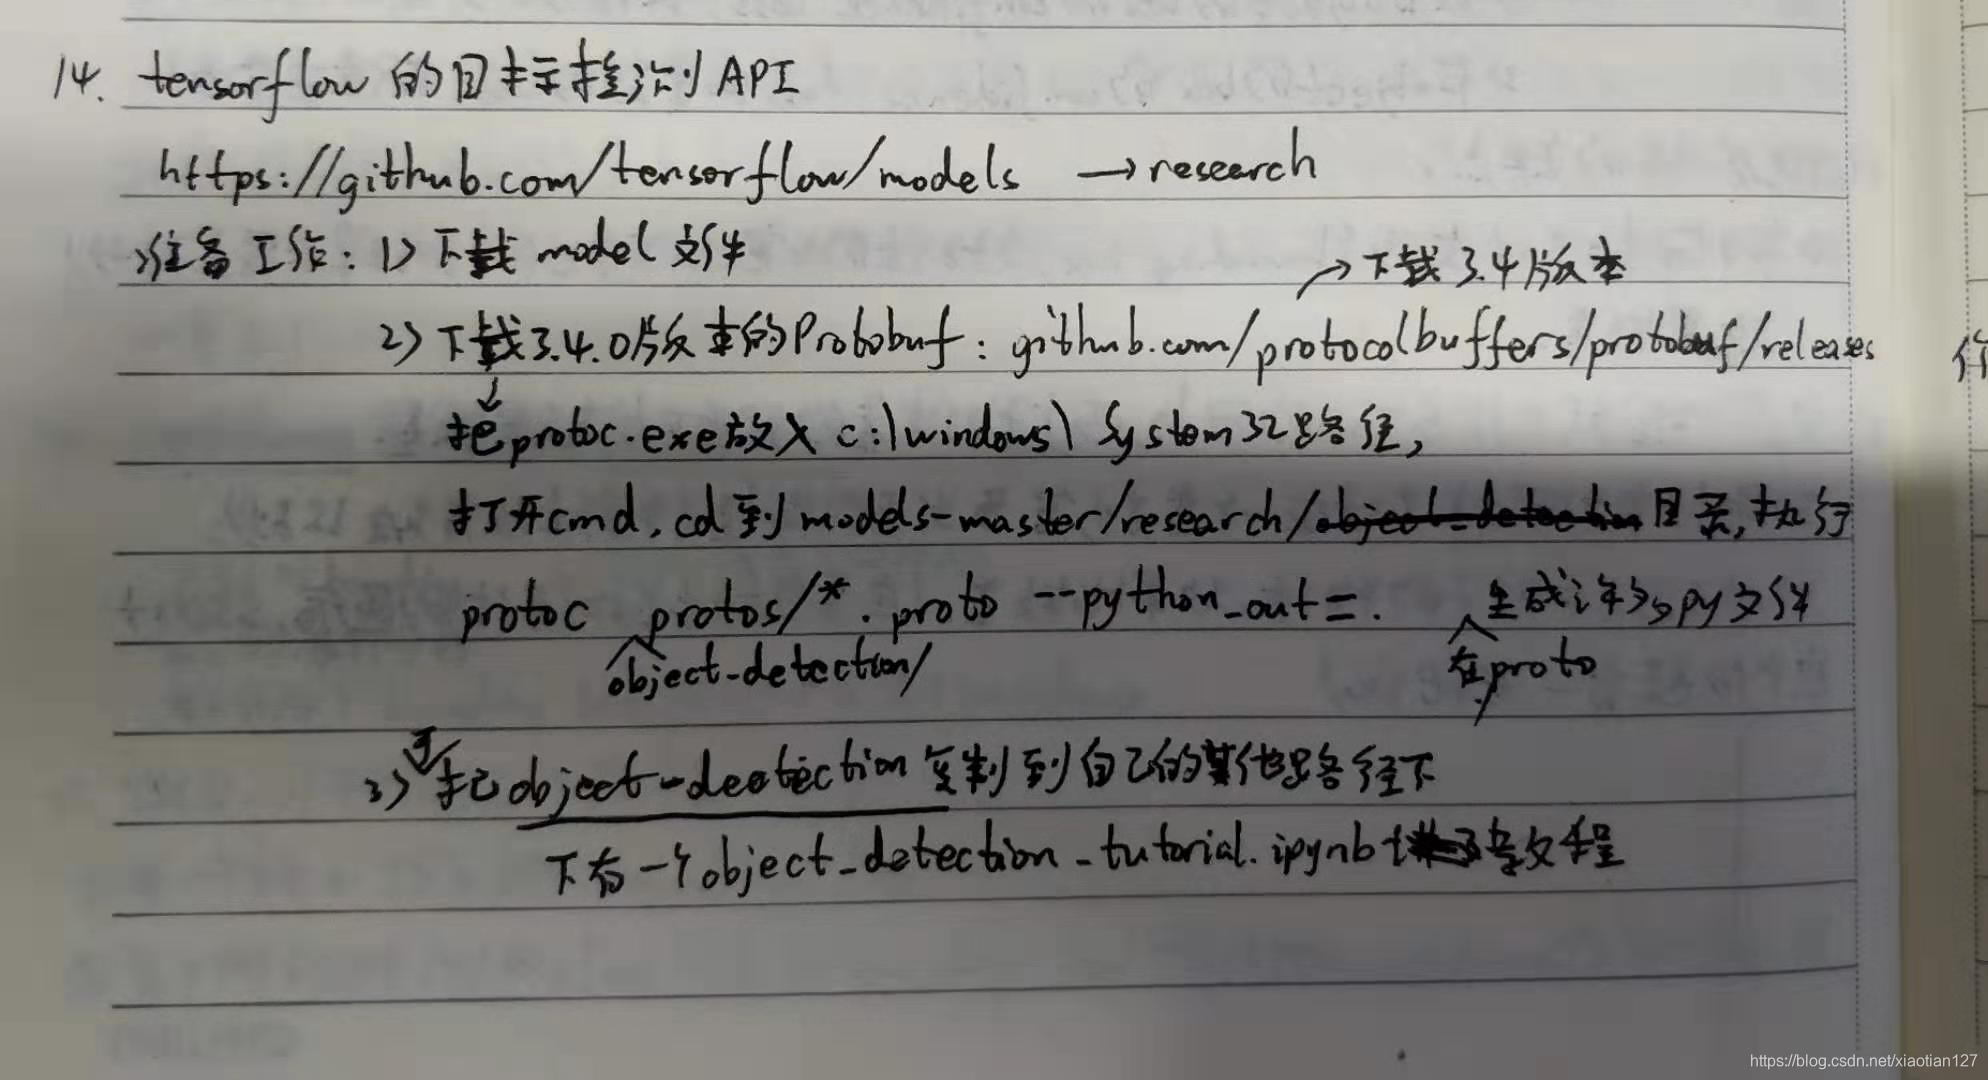 14. tensorflow 的目标检测 API
https://github.com/tensorflow/models → research
准备工作: 1) 下载 model 文件
→下载 3.4版本
2) 下载3.4.0版本的Protobuf: github.com/protocolbuffers/protobuf/releases
把protoc.exe放入 c:\windows\System32路径,
打开cmd, cd 到 models-master/research/object_detection目录, 执行
protoc protos/*.proto --python_out=. 生成许多py文件
object-detection/ 在proto
可
3) 把object-deetection复制到自己的其他路径下
下有一个object_detection_tutorial.ipynb 教程
https://blog.csdn.net/xiaotian127